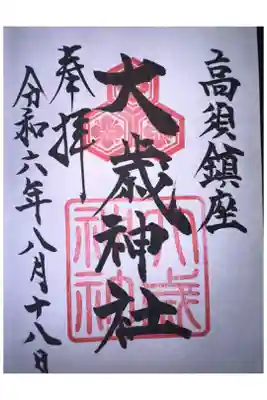 高須鎮座
大歳神社
奉拝
令和六年八月十八日